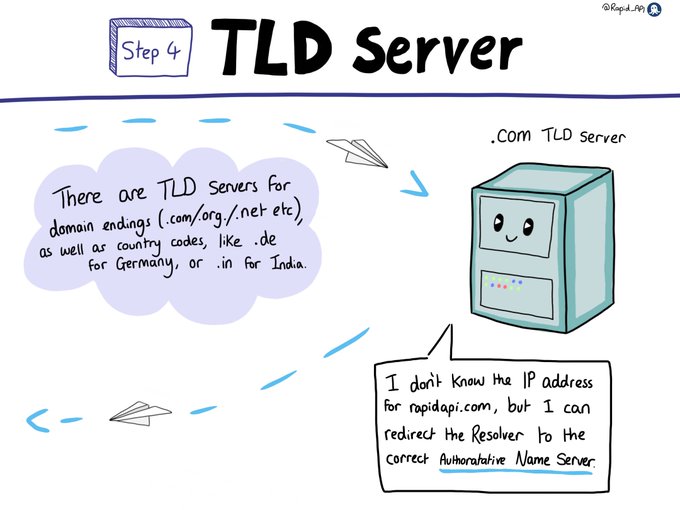 @Rapid_API
Step 4
TLD Server
.com TLD server
There are TLD Servers for
domain endings (.com/.org./.net etc),
as well as country codes, like .de
for Germany, or .in for India.
I don't know the IP address
for rapidapi.com, but I can
redirect the Resolver to the
correct Authoratative Name Server.